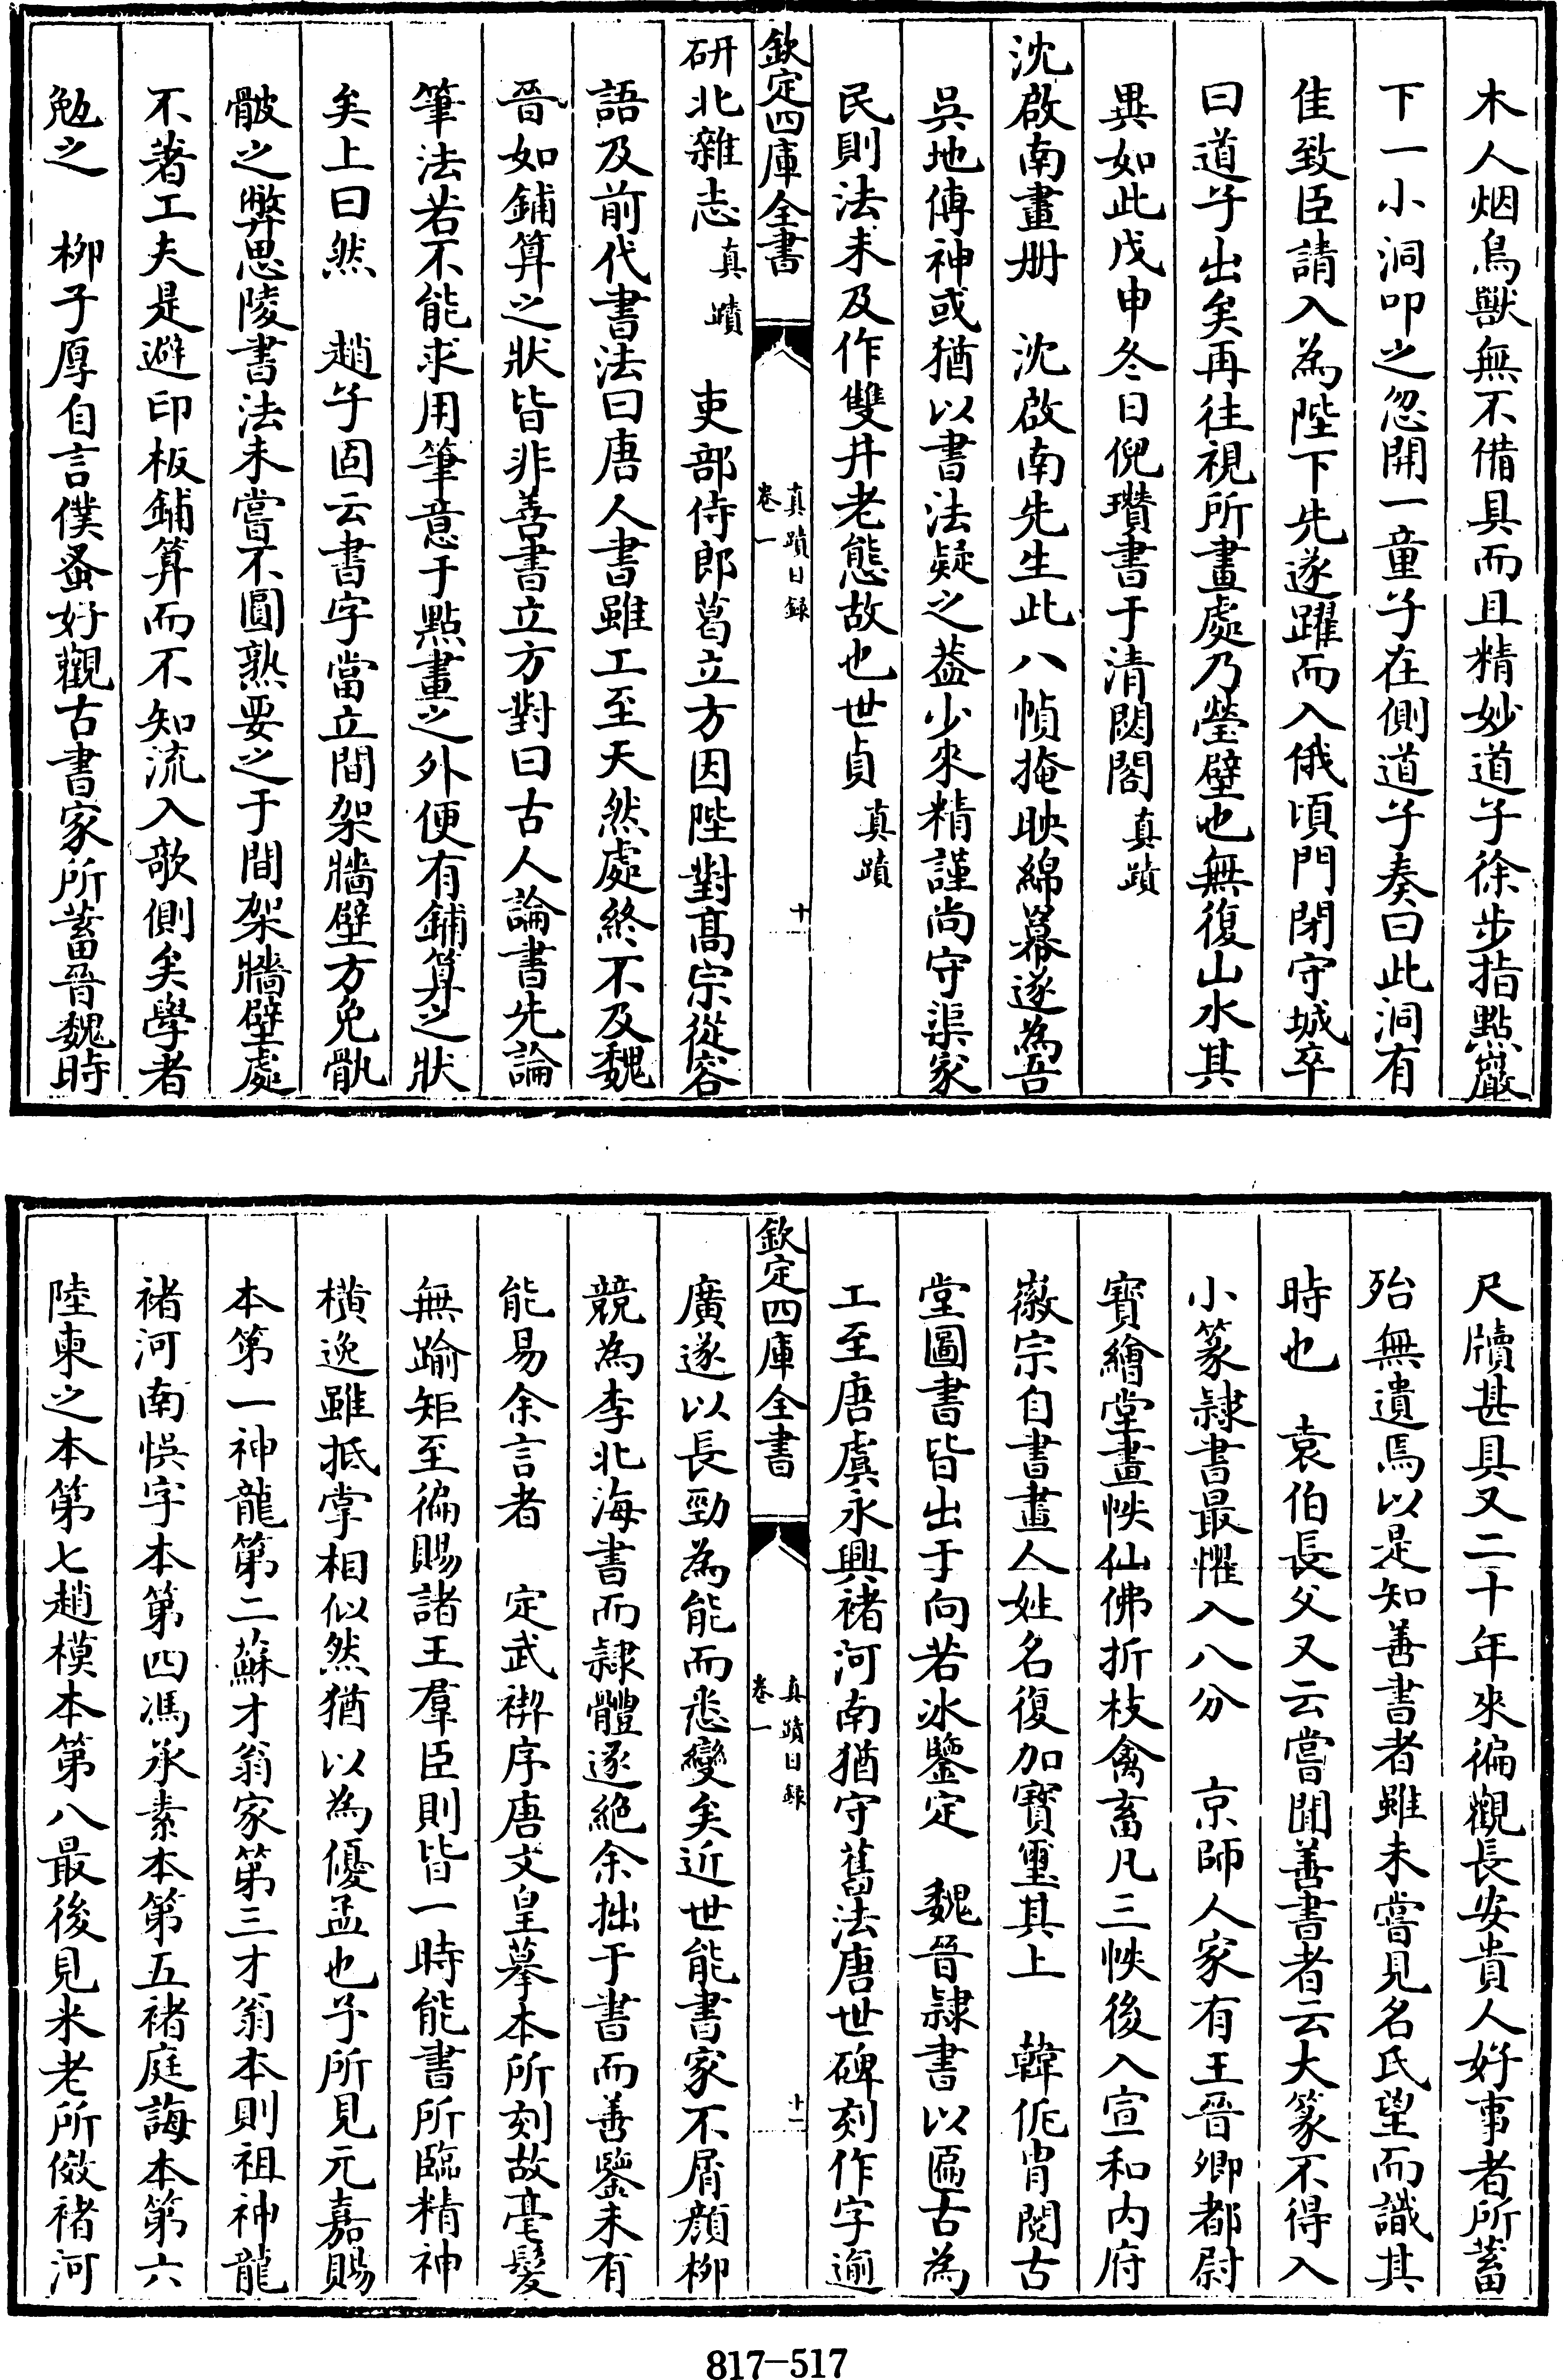 木人烟鳥獸無不備具而且精妙道子徐步指點巖
下一小洞叩之忽開一童子在側道子奏曰此洞有
佳致臣請入為陛下先遂躍而入俄頃門閉守城卒
曰道子出矣再往視所畫處乃瑩壁也無復山水其
異如此戊申冬日倪瓚書于清閟閣 真蹟
沈啟南畫册 沈啟南先生此八幀掩映綿冪遂為吾
吳地傳神或猶以書法疑之葢少來精謹尚守渠家
民則法未及作雙井老態故也世貞 真蹟
欽定四庫全書 真蹟日録 卷一 十
研北雜志 真蹟 吏部侍郎葛立方因陛對髙宗從容
語及前代書法曰唐人書雖工至天然處終不及魏
晉如鋪算之狀皆非善書立方對曰古人論書先論
筆法若不能求用筆意于點畫之外便有鋪算之狀
矣上曰然 趙子固云書字當立間架牆壁方免骫
骳之弊思陵書法未嘗不圓熟要之于間架牆壁處
不著工夫是避印板鋪算而不知流入欹側矣學者
勉之 栁子厚自言僕蚤好觀古書家所蓄晉魏時
尺牘甚具又二十年來徧觀長安貴人好事者所蓄
殆無遺焉以是知善書者雖未嘗見名氏望而識其
時也 袁伯長父又云嘗聞善書者云大篆不得入
小篆隸書最懼入八分 京師人家有王晉卿都尉
寳繪堂畫帙仙佛折枝禽畜凡三帙後入宣和内府
徽宗自書畫人姓名復加寳璽其上 韓侂胄閱古
堂圖書皆出于向若冰鑒定 魏晉隸書以匾古為
工至唐虞永興褚河南猶守舊法唐世碑刻作字逾
欽定四庫全書 真蹟日録 卷一 十一
廣遂以長勁為能而悉變矣近世能書家不屑顔栁
競為李北海書而隸體遂絶余拙于書而善鑒未有
能易余言者 定武禊序唐文皇摹本所刻故毫髮
無踰矩至徧賜諸王羣臣則皆一時能書所臨精神
橫逸雖抵掌相似然猶以為優孟也予所見元嘉賜
本第一神龍第二蘇才翁家第三才翁本則祖神龍
褚河南悞字本第四馮承素本第五褚庭誨本第六
陸柬之本第七趙模本第八最後見米老所倣褚河
817-517